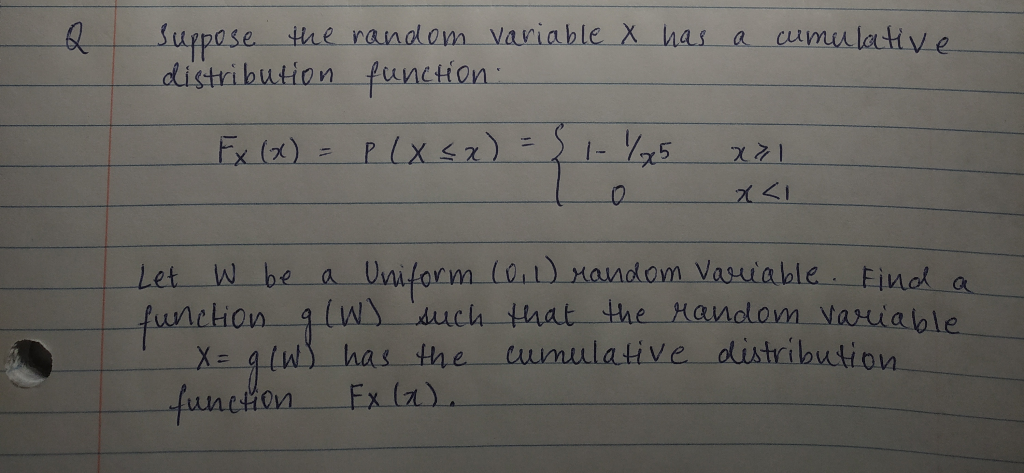 Q Suppose the random variable X has a cumulative
distribution function:
Fx (x) = P(X ≤ x) = { 1- 1/x5 x ≥ 1
0 x < 1
Let W be a Uniform (0,1) random variable. Find a
function g(W) such that the random variable
X = g(W) has the cumulative distribution
function Fx (x).